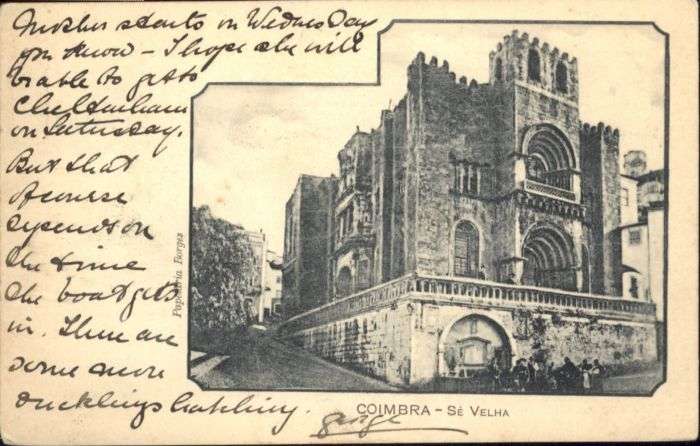 Mother starts on Wednesday
you know – I hope she will
be able to get to
Cheltenham
on Saturday.
But that
of course
depends on
the time
the boat gets
in. There are
some more
ducklings hatching.
george
Papelaria Borges
COIMBRA – SÉ VELHA